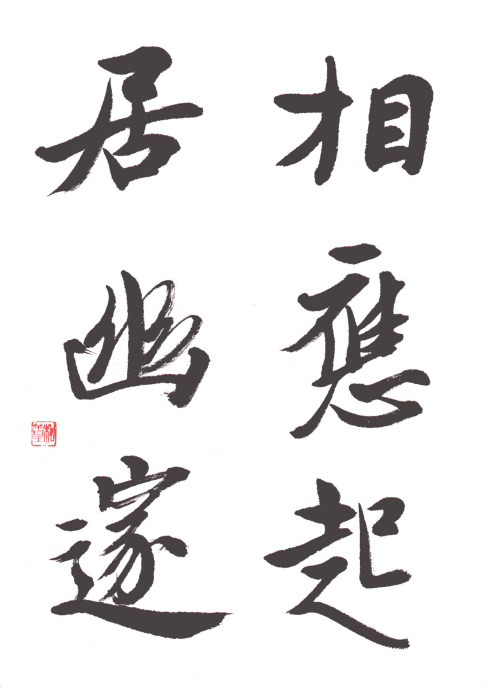 相應起
居幽邃